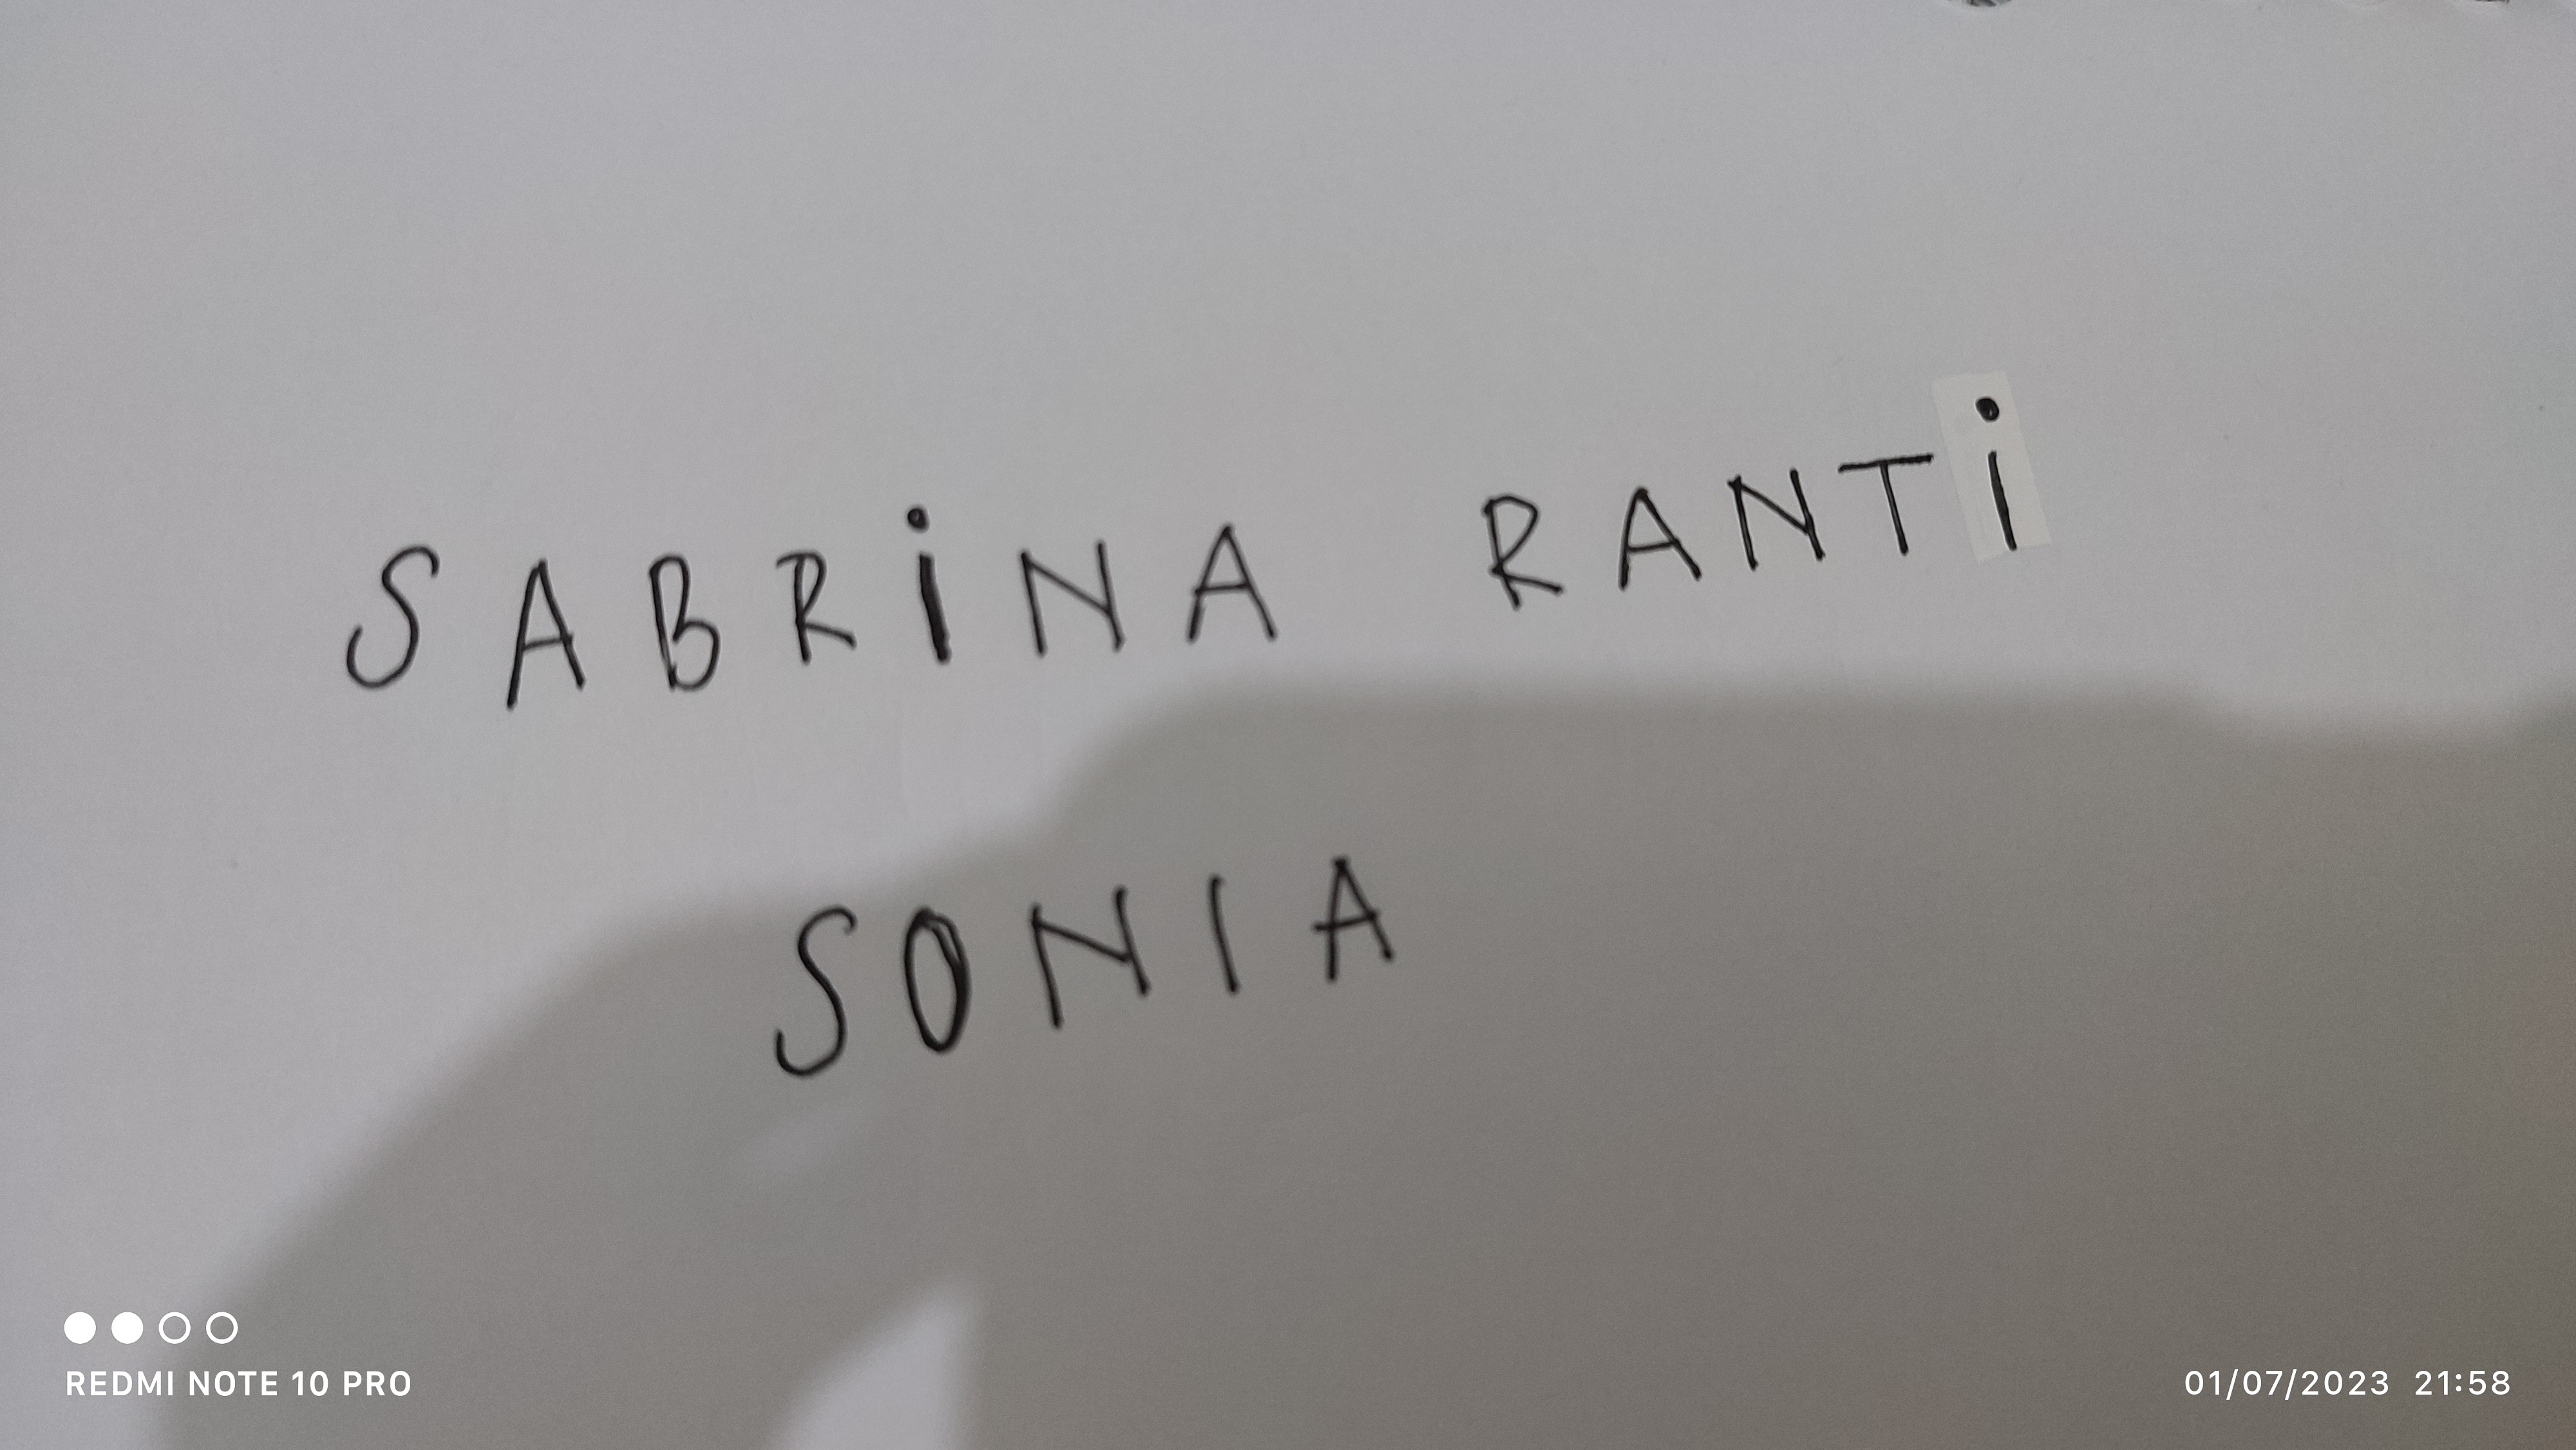 SABRiNA RANTi
SONIA
REDMI NOTE 10 PRO
01/07/2023 21:58